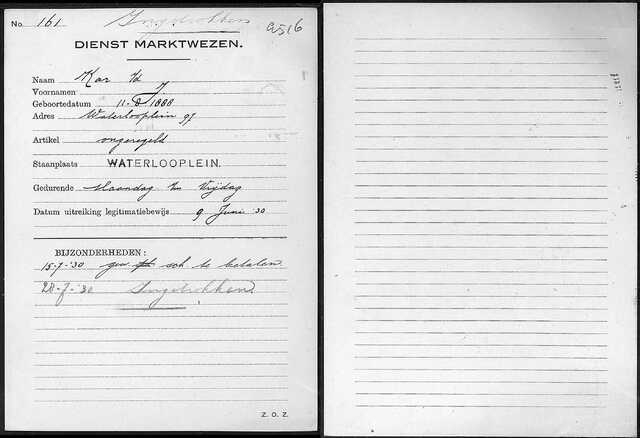 No. 161 Ingetrokken 9516
DIENST MARKTWEZEN.
Naam Kar
Voornamen J.
Geboortedatum 11-8-1888
Adres Waterlooplein 97
Artikel ongeregeld
Staanplaats WATERLOOPLEIN.
Gedurende Maandag t/m Vrijdag
Datum uitreiking legitimatiebewijs 9 Juni '30
BIJZONDERHEDEN:
15-7-'30 sch te betalen.
28-7-'30 Ingetrokken.
Z. O. Z.